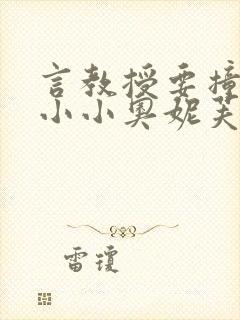 言教授要撞
小小奥妮芙
雷琼